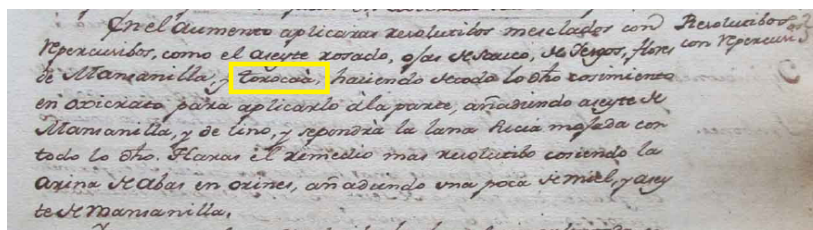 En el aumento aplicaras resolutibos mesclados con
repercusibos, como el aseyte rosado, ojas de sauco, de Yesgos, flores
de Mansanilla, y haciendo de todo lo dho cosimiento
en oxicrato para aplicarlo á la parte, añadiendo aseyte de
Mansanilla, y de lino, y sepondrà la lana sucia mojada con
todo lo dho. Haras el remedio mas resolutibo cosiendo la
arina de abas en orines, añadiendo una poca de miel, y asey
te de mansanilla.
Resolutibos
con repercusi